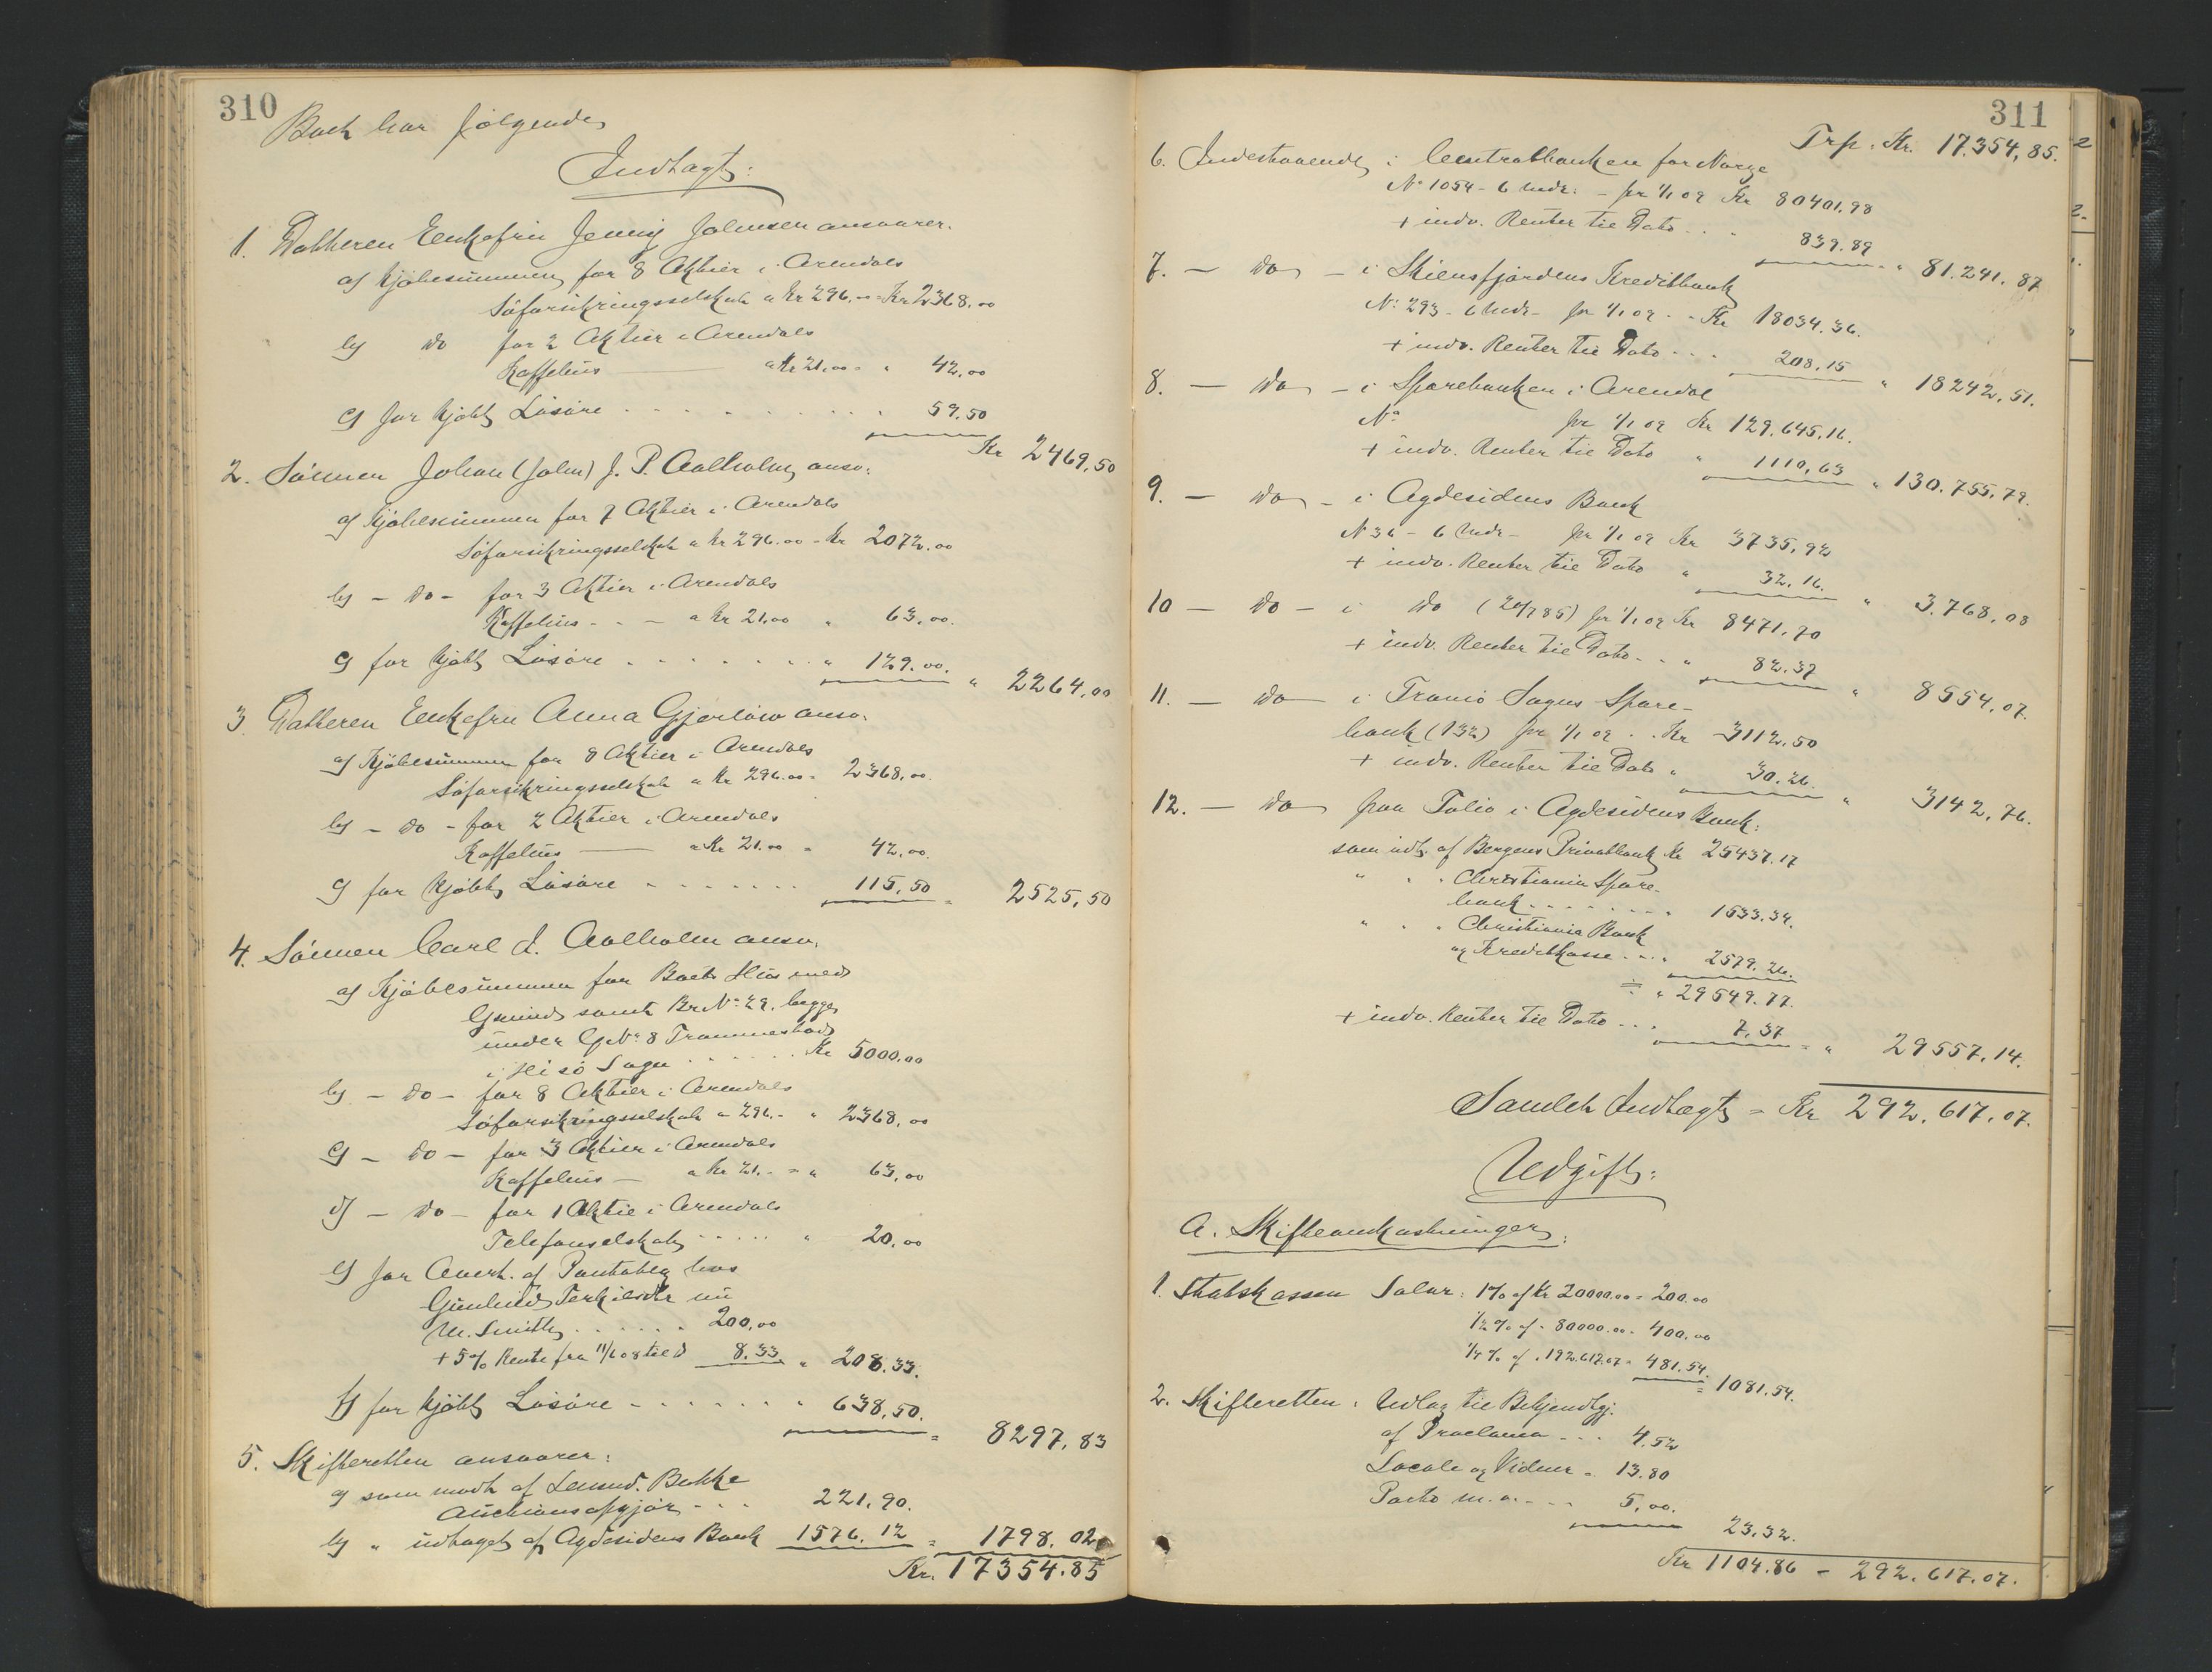 310
Boet har følgende
Indtægt:
1. Datteren Enkefru Jenny Johnsen ansvarer.
a) Kjøbesummen for 8 Aktier i Arendals
Söforsikringsselskab a Kr 296.00 = Kr 2368.00
b) do for 2 Aktier i Arendals
Kaffehus a Kr 21.00 = " 42.00
c) for kjøbt Løsøre . . . . . 59.50
Kr 2469,50
2. Sönnen Johan (John) J. P. Aalholm ansv:
a) Kjøbesummen for 7 Aktier i Arendals
Söforsikringsselskab a Kr 296.00 - Kr 2072.00
b) - do - for 3 Aktier i Arendals
Kaffehus - - a Kr 21.00 " 63,00.
c) for kjøbt Løsøre . . . . . " 129.00.
" 2264,00
3. Datteren Enkefru Anna Gjerløw ansv.
a) Kjøbesummen for 8 Aktier i Arendals
Söforsikringsselskab a Kr 296.00 = 2368,00.
b) - do - for 2 Aktier i Arendals
Kaffehus a Kr 21.00 " 42,00.
c) for kjøbt Løsøre . . . . . 115,50
= 2525,50
4. Sönnen Carl J. Aalholm ansv.
a) Kjøbesummen for Boets Hus med
Grund samt Br.No 29. begge
under G.No 8 Trommestad
i Hisö Sogn . . . . Kr 5000.00
b) - do - for 8 Aktier i Arendals
Söforsikringsselskab a 296.- " 2368,00
c) - do - for 3 Aktier i Arendals
Kaffehus - a Kr 21.- = " 63,00
d) - do - for 1 Aktie i Arendals
Telefonselskab . . . . . " 20,00
e) for Overt. af Pantobl. hos
Gunhild Terkilsdtr nu
M. Smith . . . . . 200,00
+ 5% Rente fra 11/6 08 til d 8.33 " 208.33.
f) for kjøbt Løsøre . . . . . " 638,50.
= 8297,83
5. Skifteretten ansvarer:
a) som modt. af Lensmd. Bakke
Auctionsopgjør - - - 221,90.
b) " udtaget af Agdesidens Bank 1576.12 = 1798.02
Kr. 17354.85
311
Trp. Kr. 17.354,85.
6. Indestaaende i Centralbanken for Norge
No 1054 - 6 Mdr: - pr 1/1 09 Kr 80401.98
+ indv. Renter til Dato . . - 839.89
" 81.241.87
7. - do - i Skiensfjordens Kreditbank
No 293 - 6 Mdr - pr 1/1 09 - - Kr 18034.36.
+ indv. Renter til Dato . . . 208.15
" 18242,51.
8. - do - i Sparebanken i Arendal
No pr 1/1 09 Kr 129.645.16.
+ indv. Renter til Dato " 1110,63
" 130.755,79.
9. - do - i Agdesidens Bank
No 36 - 6 Mdr - pr 1/1 09 Kr 3735,92
+ indv. Renter til Dato " 32.16.
" 3.768,08
10 - do - i do (20/785) pr 1/1 09 Kr 8471.70
+ indv. Renter til Dato - . " 82.37
" 8554,07.
11. - do i Tromö Sogns Spare-
bank (132) pr 1/1 09 . . Kr 3112.50
+ indv. Renter til Dato " 30.26.
" 3142,76.
12. - do paa Folio i Agdesidens Bank:
som udb. af Bergens Privatbank Kr 25437.17
" . . Christiania Spare-
bank . . . . . . . " 1533.34.
" . . Christiania Bank
og Kreditkasse . . . . 2579.26.
= " 29549.77.
+ indv. Renter til Dato . . . 7.37
= " 29557.14.
Samlet Indtægt = Kr 292.617.07.
Udgift:
A. Skifteomkostninger:
1. Statskassen Salær: 1% af Kr 20000.00 = 200.00
1/2% af " 80000.00 = 400.00
1/4% af " 192.617.07 = 481.54.
= 1081.54.
2. Skifteretten: Udlæg til Bekjendtgj.
af Proclama . . . 4.52
Locale og Vidner = 13.80
Porto m.v. . - - 5.00.
23.32.
Kr 1104.86 - 292.617.07.